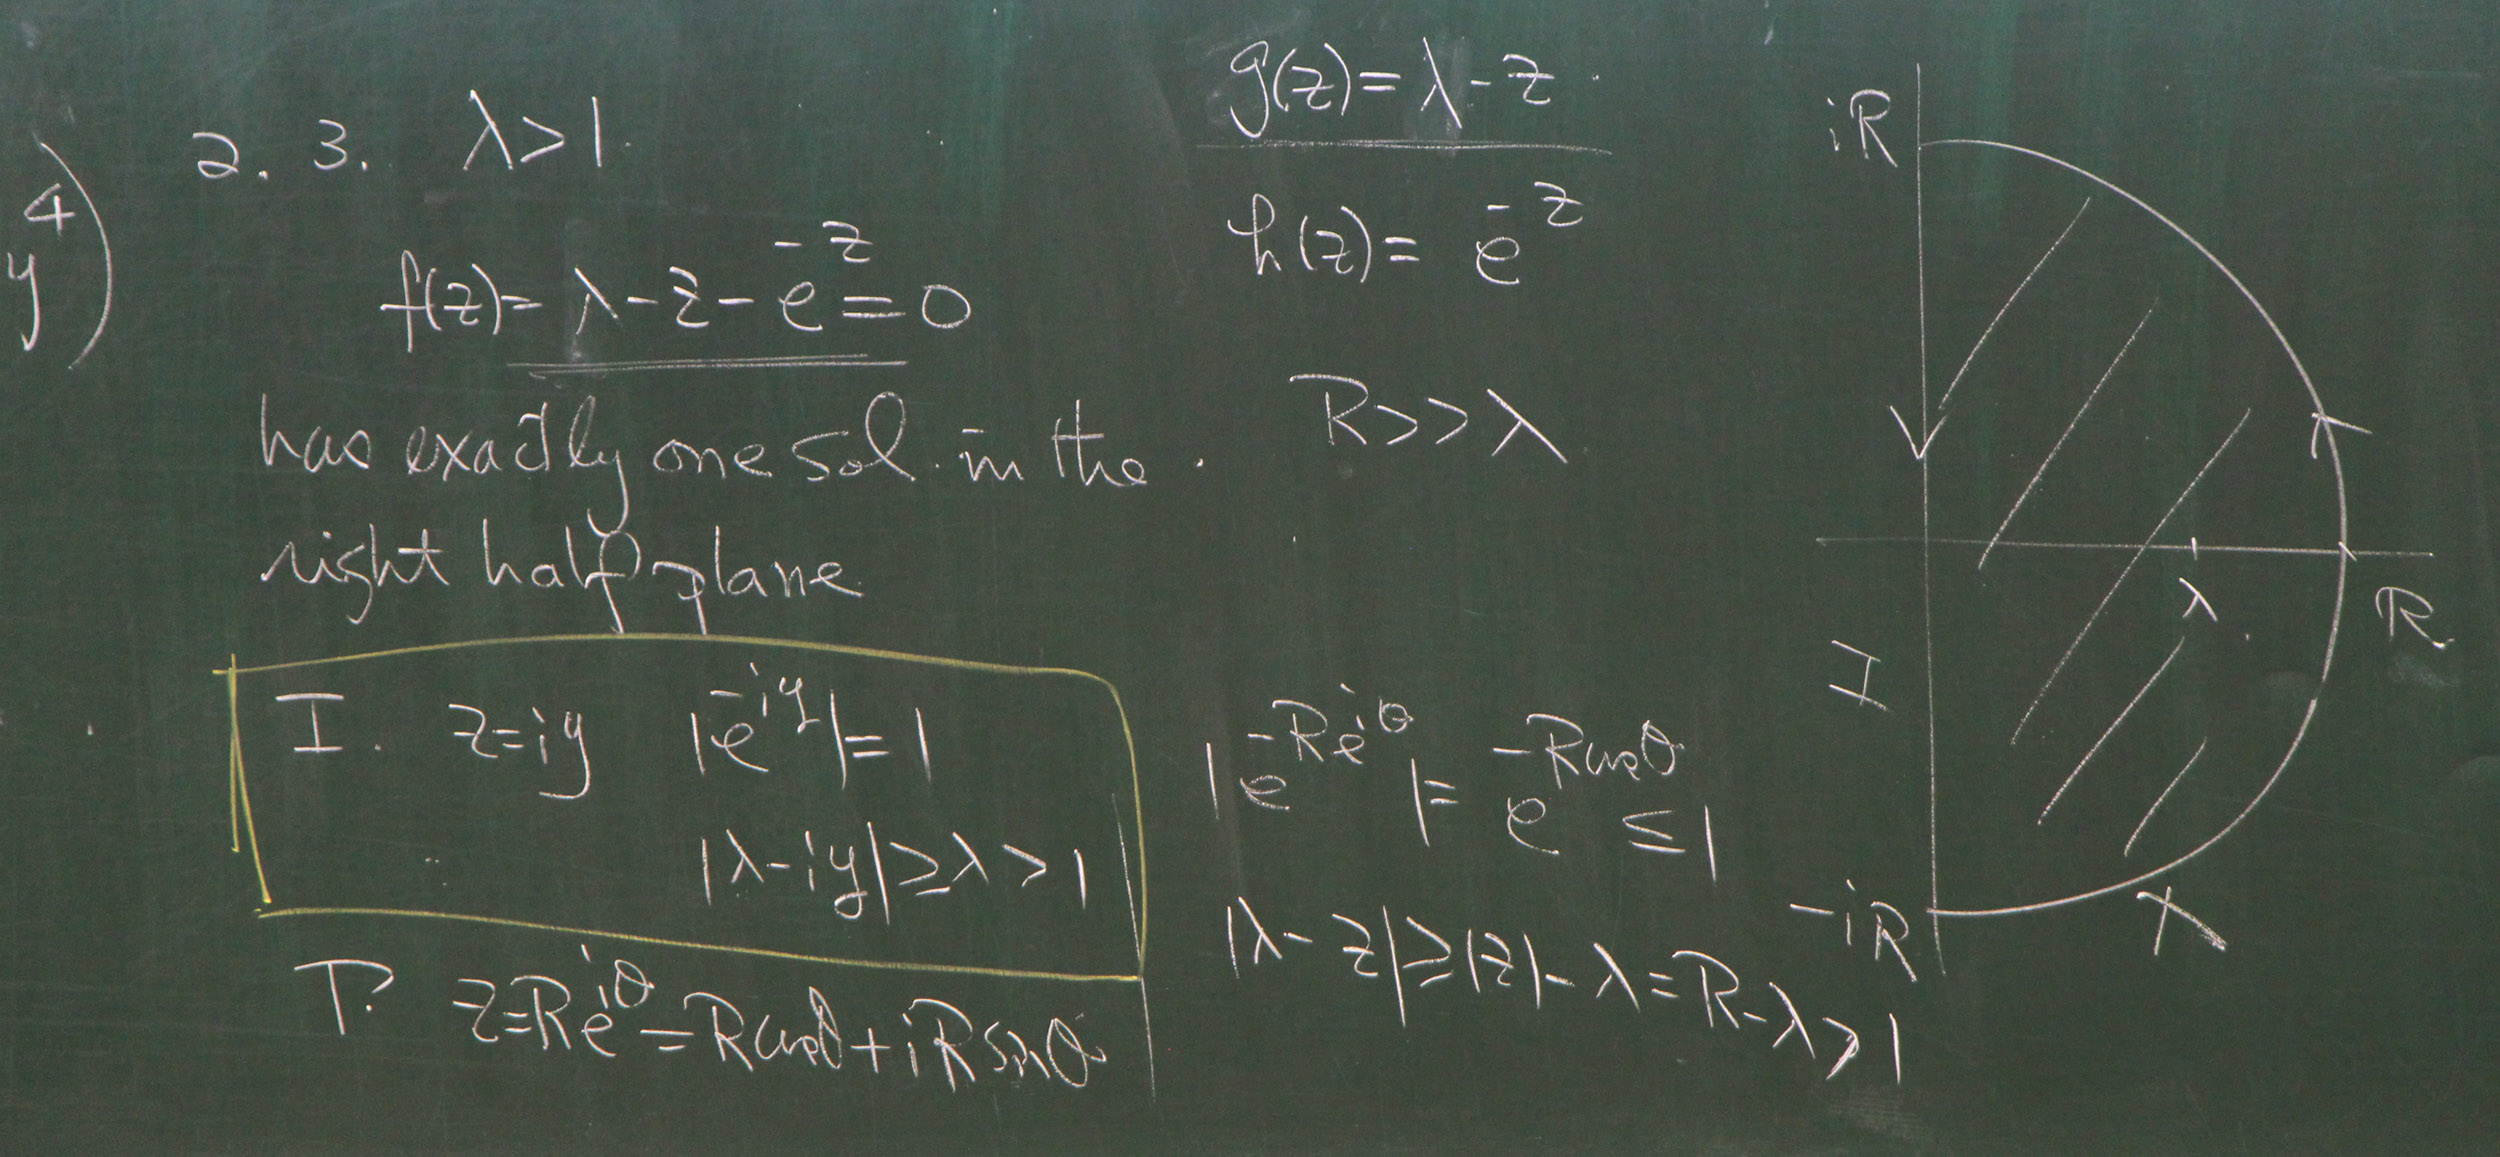 y⁴)
2. 3. λ>1.
f(z)= λ-z-e^{-z}=0
has exactly one sol. in the
right half plane
I. z=iy |e^{-iy}|=1
|λ-iy|≥λ>1
z=Re^{iθ}=Rcosθ+iRsinθ
g(z)=λ-z.
h(z)= e^{-z}
R>>λ
|e^{-Re^{iθ}}|= e^{-Rcosθ} ≤1
|λ-z|≥|z|-λ=R-λ>1
iR
λ.
R
I
-iR